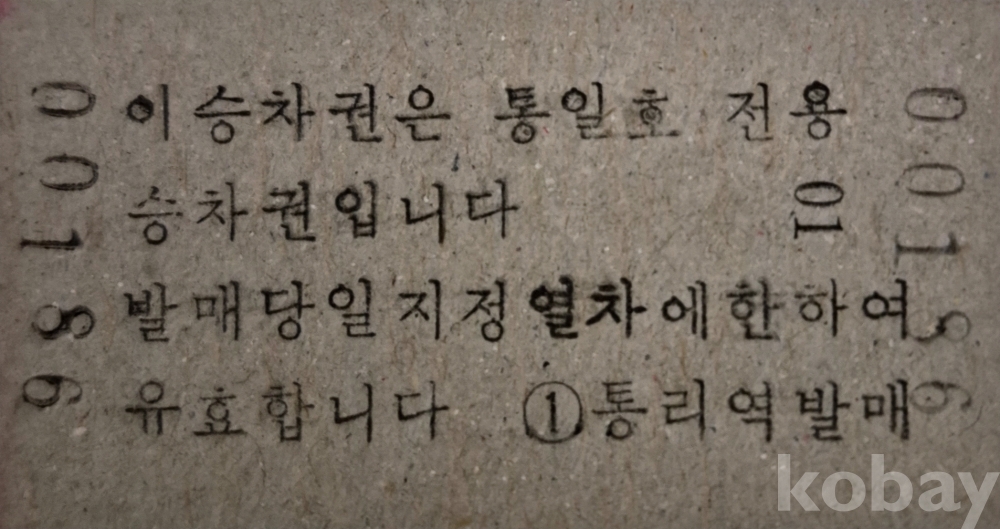 이승차권은 통일호 전용
승차권입니다 01
발매당일지정열차에한하여
유효합니다 ①통리역발매
00186
00186
kobay